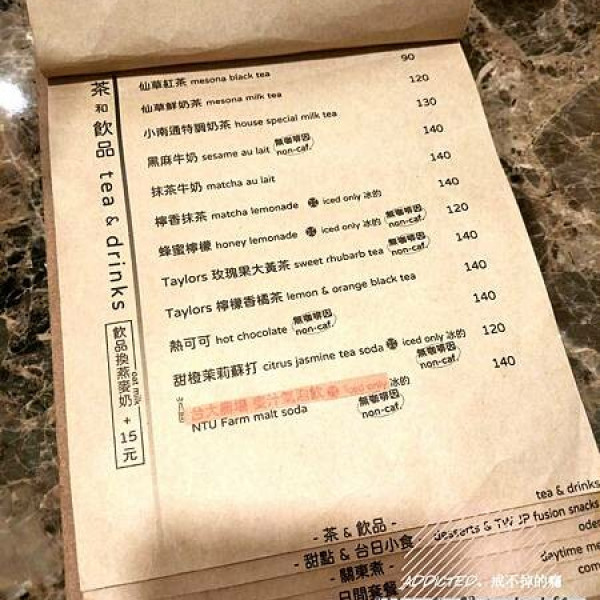 茶和飲品 tea & drinks
飲品換燕麥奶 + 15元
oat milk
仙草紅茶 mesona black tea 90
仙草鮮奶茶 mesona milk tea 120
小南通特調奶茶 house special milk tea 130
黑麻牛奶 sesame au lait 無咖啡因 non-caf. 140
抹茶牛奶 matcha au lait 140
檸香抹茶 matcha lemonade iced only 冰的 140
蜂蜜檸檬 honey lemonade iced only 冰的 無咖啡因 non-caf. 120
Taylors 玫瑰果大黃茶 sweet rhubarb tea 無咖啡因 non-caf. 140
Taylors 檸檬香橘茶 lemon & orange black tea 140
熱可可 hot chocolate 無咖啡因 non-caf. 140
甜橙茉莉蘇打 citrus jasmine tea soda iced only 冰的 120
台大農場 麥汁氣泡飲 iced only 冰的 無咖啡因 non-caf. 140
NTU Farm malt soda 無咖啡因 non-caf.
- 茶 & 飲品 - tea & drinks
- 甜點 & 台日小食 desserts & TW JP fusion snacks
- 關東煮 - oden
- 日間套餐 daytime
ADDICTED、戒不掉的癮